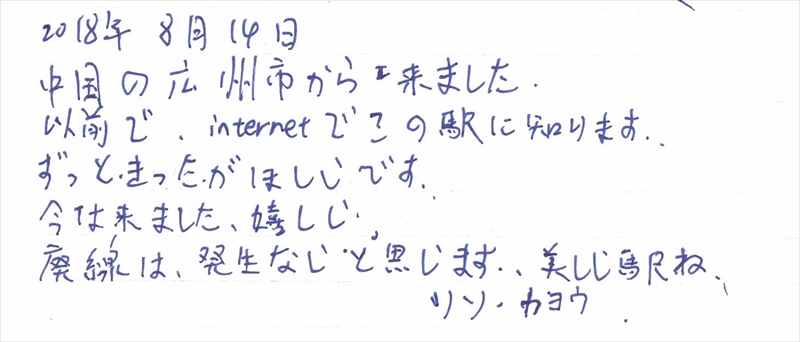 2018年 8月 14日
中国の広州市から来ました.
以前で、internetでこの駅に知ります.
ずっと.きったがほしいです.
今は来ました、嬉しい.
廃線は、発生ないと思います.、美しい駅ね.
リソ・カヨウ.